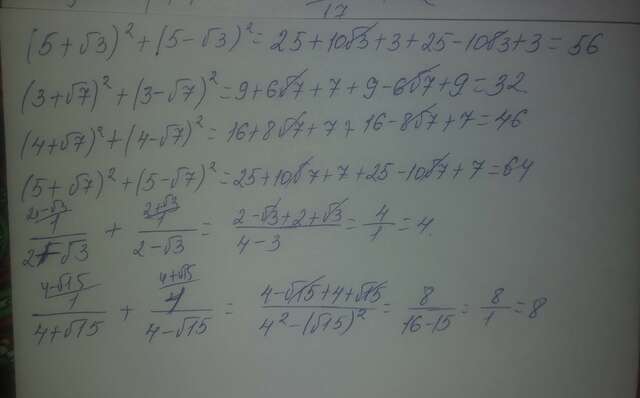 17
(5+√3)²+(5-√3)²=25+10√3+3+25-10√3+3=56
(3+√7)²+(3-√7)²=9+6√7+7+9-6√7+9=32
(4+√7)²+(4-√7)²=16+8√7+7+16-8√7+7=46
(5+√7)²+(5-√7)²=25+10√7+7+25-10√7+7=64
2-√3 2+√3
1/2+√3 + 1/2-√3 = 2-√3+2+√3/4-3 = 4/1 = 4.
4-√15 4+√15
1/4+√15 + 1/4-√15 = 4-√15+4+√15/4²-(√15)² = 8/16-15 = 8/1 = 8